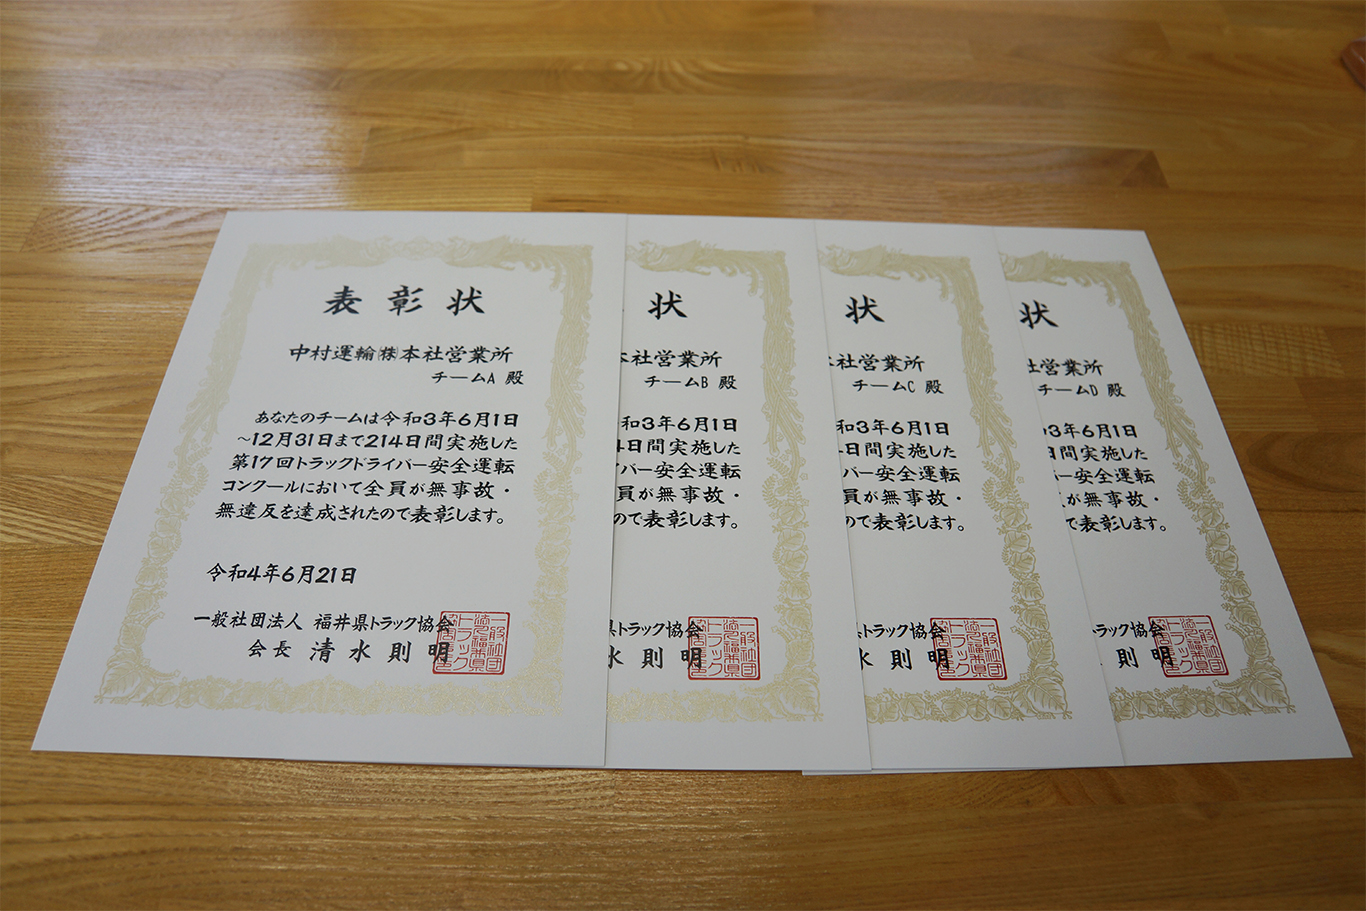 表彰状
中村運輸㈱本社営業所
チームA 殿
あなたのチームは令和3年6月1日
～12月31日まで214日間実施した
第17回トラックドライバー安全運転
コンクールにおいて全員が無事故・
無違反を達成されたので表彰します。
令和4年6月21日
一般社団法人 福井県トラック協会
会長 清水則明
状
本社営業所
チームB 殿
和3年6月1日
4日間実施した
バー安全運転
員が無事故・
ので表彰します。
県トラック協会
水則明
状
社営業所
チームC 殿
和3年6月1日
日間実施した
バー安全運転
員が無事故・
ので表彰します。
県トラック協会
水則明
状
社営業所
チームD 殿
3年6月1日
日間実施した
バー安全運転
員が無事故・
で表彰します。
トラック協会
則明